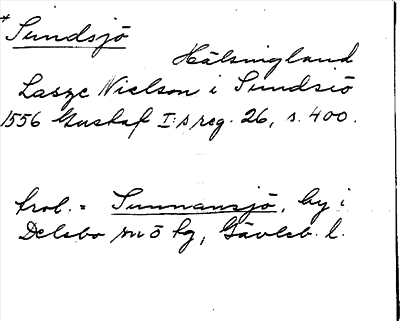 * Sundsjö
Hälsingland
Lasze Nielson i Sundsiö
1556 Gustaf I:s reg. 26, s. 400.
trol. = Sunnansjö, by i
Delsbo sn ö kg, Gävleb. l.